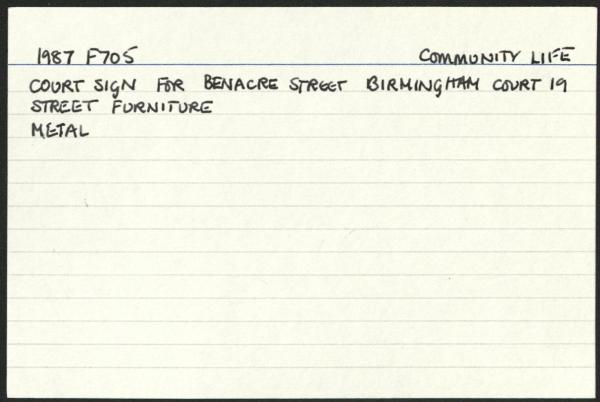 1987 F705 COMMUNITY LIFE
COURT SIGN FOR BENACRE STREET BIRMINGHAM COURT 19
STREET FURNITURE
METAL